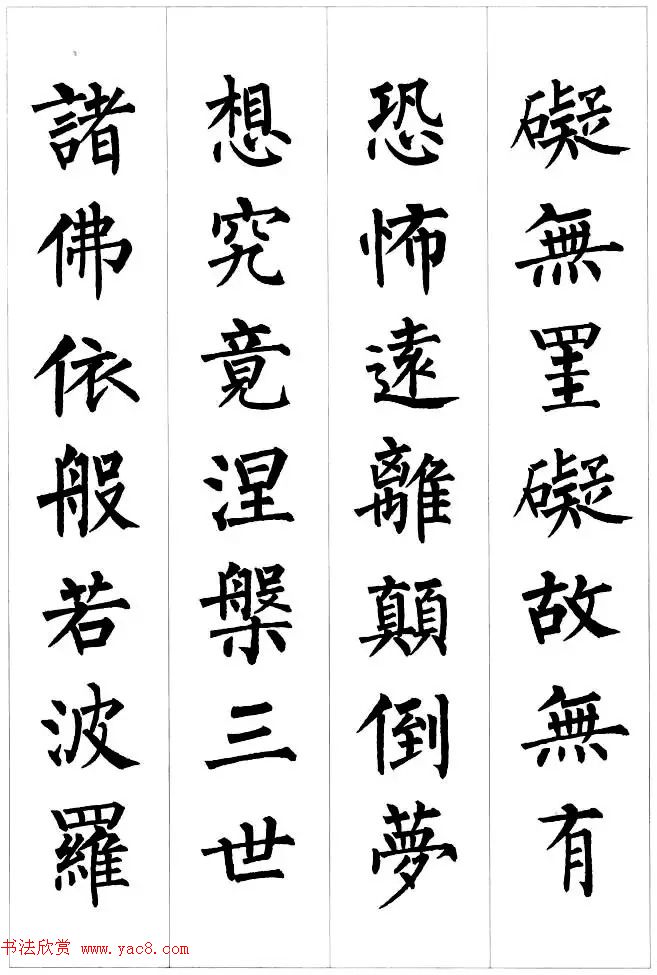 礙無罣礙故無有
恐怖遠離顛倒夢
想究竟涅槃三世
諸佛依般若波羅
书法欣赏 www.yac8.com